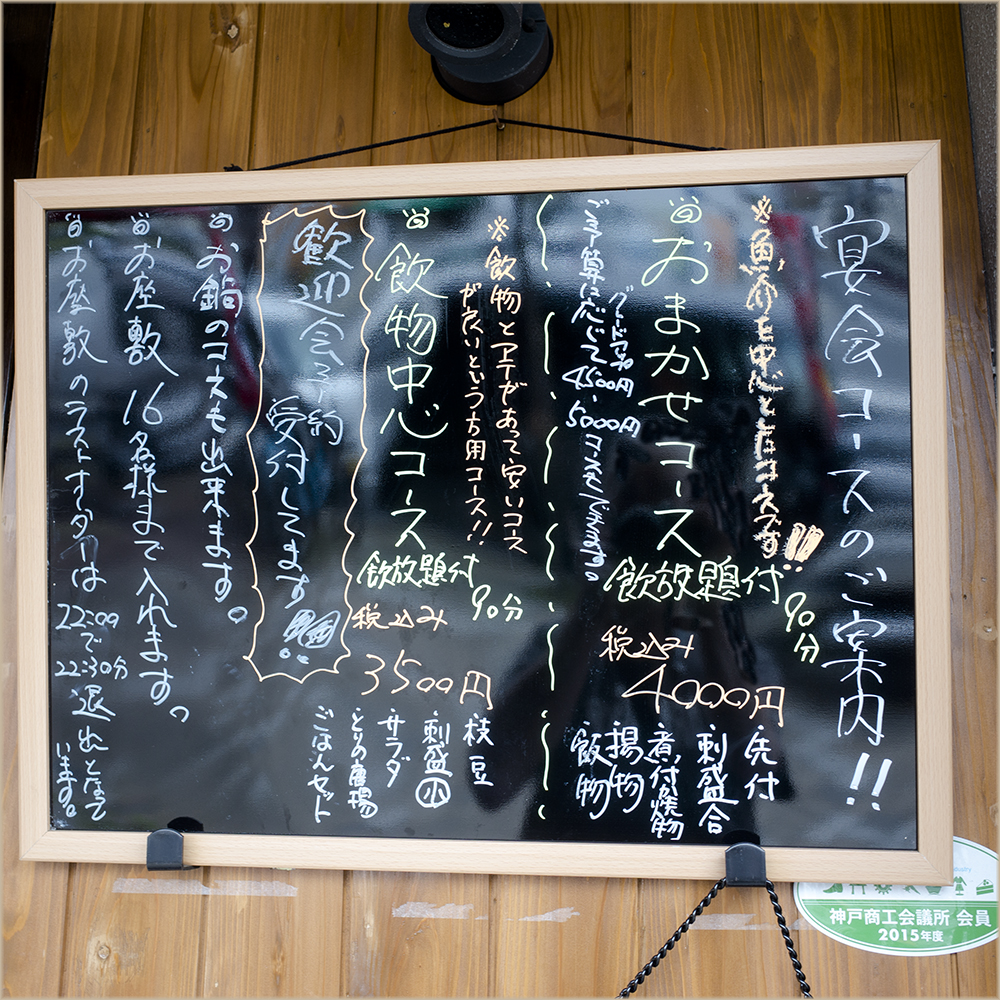 宴会コースのご案内!!
※魚介を中心としたコースです!!
おまかせコース
飲放題付
90分
税込み
4000円
先付
刺盛合
煮付or焼物
揚物
飯物
ご予算に応じて
4500円
5000円
コースもございます。
※飲物とアテがあって安いコース
が良いという方用コース!!
飲物中心コース
飲放題付
90分
税込み
3500円
枝豆
刺盛小
サラダ
とりの唐揚
ごはんセット
歓迎会予約
受付してます
お鍋のコースも出来ます。
お座敷16名様まで入れます。
お座敷のラストオーダーは
22:00で
22:30分
退出となって
います。
神戸商工会議所 会員
2015年度